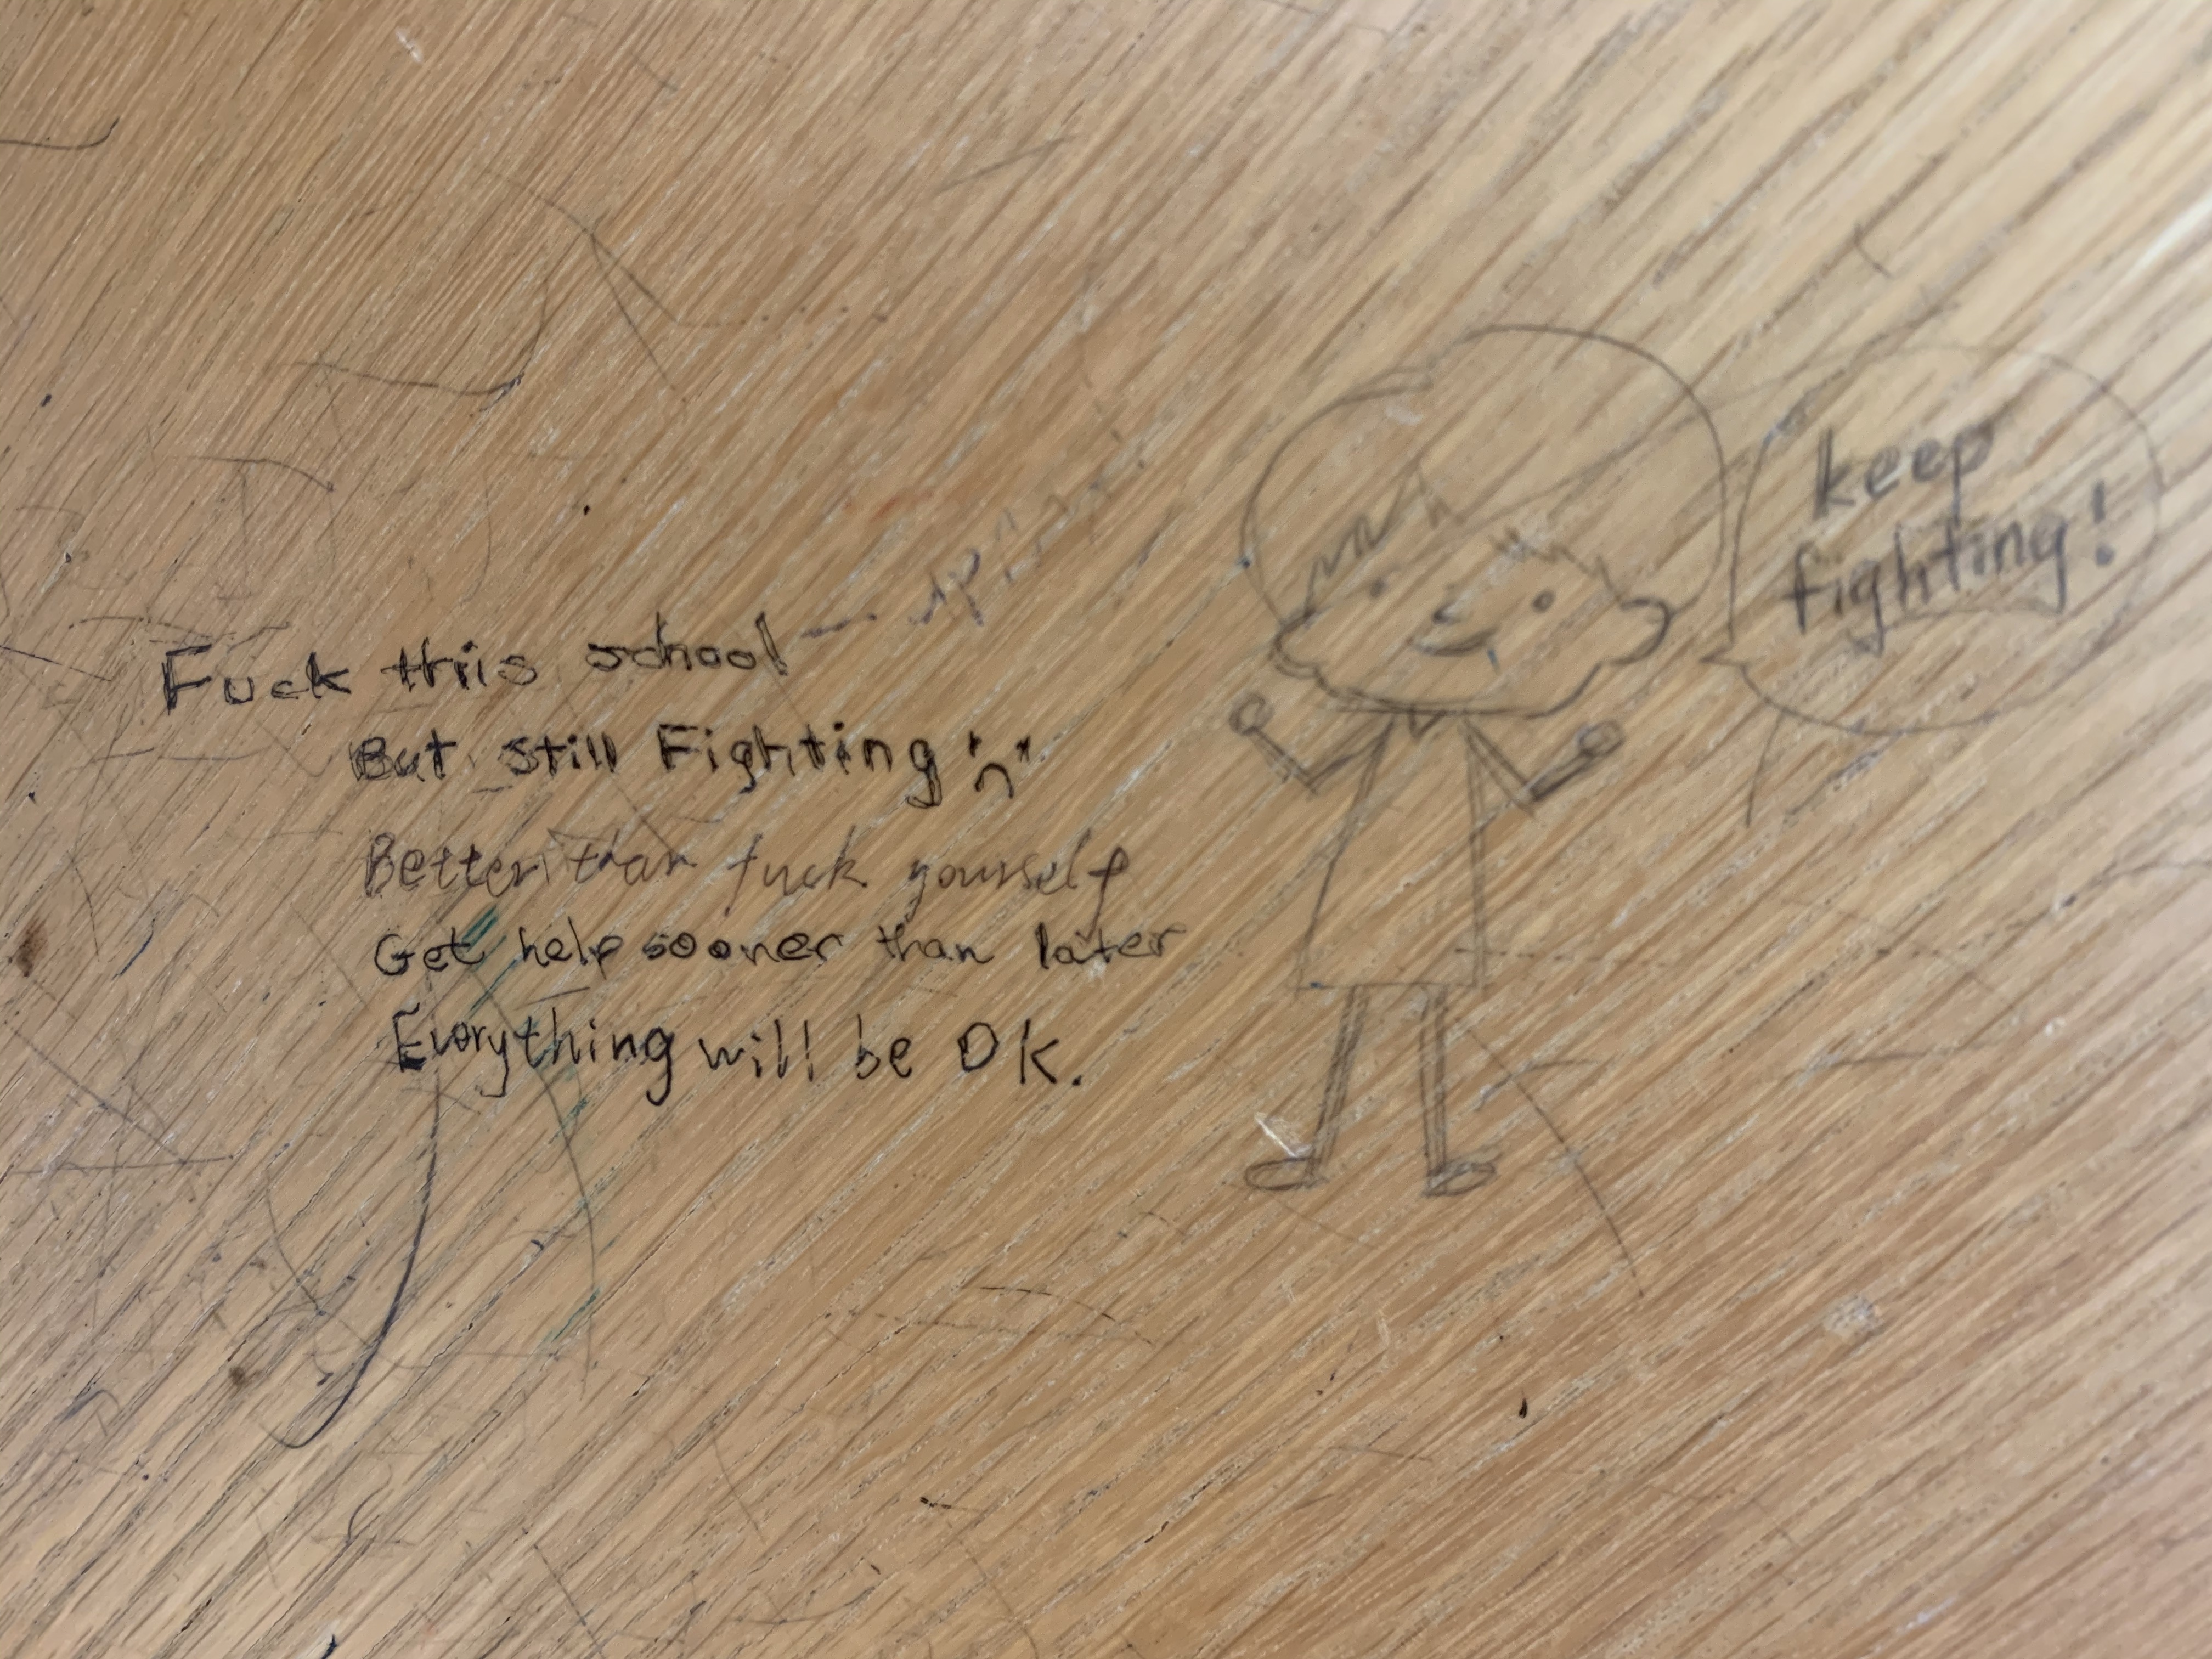 Fuck this school
But still Fighting :(
Better than fuck yourself
Get help sooner than later
Everything will be OK.
keep
fighting!